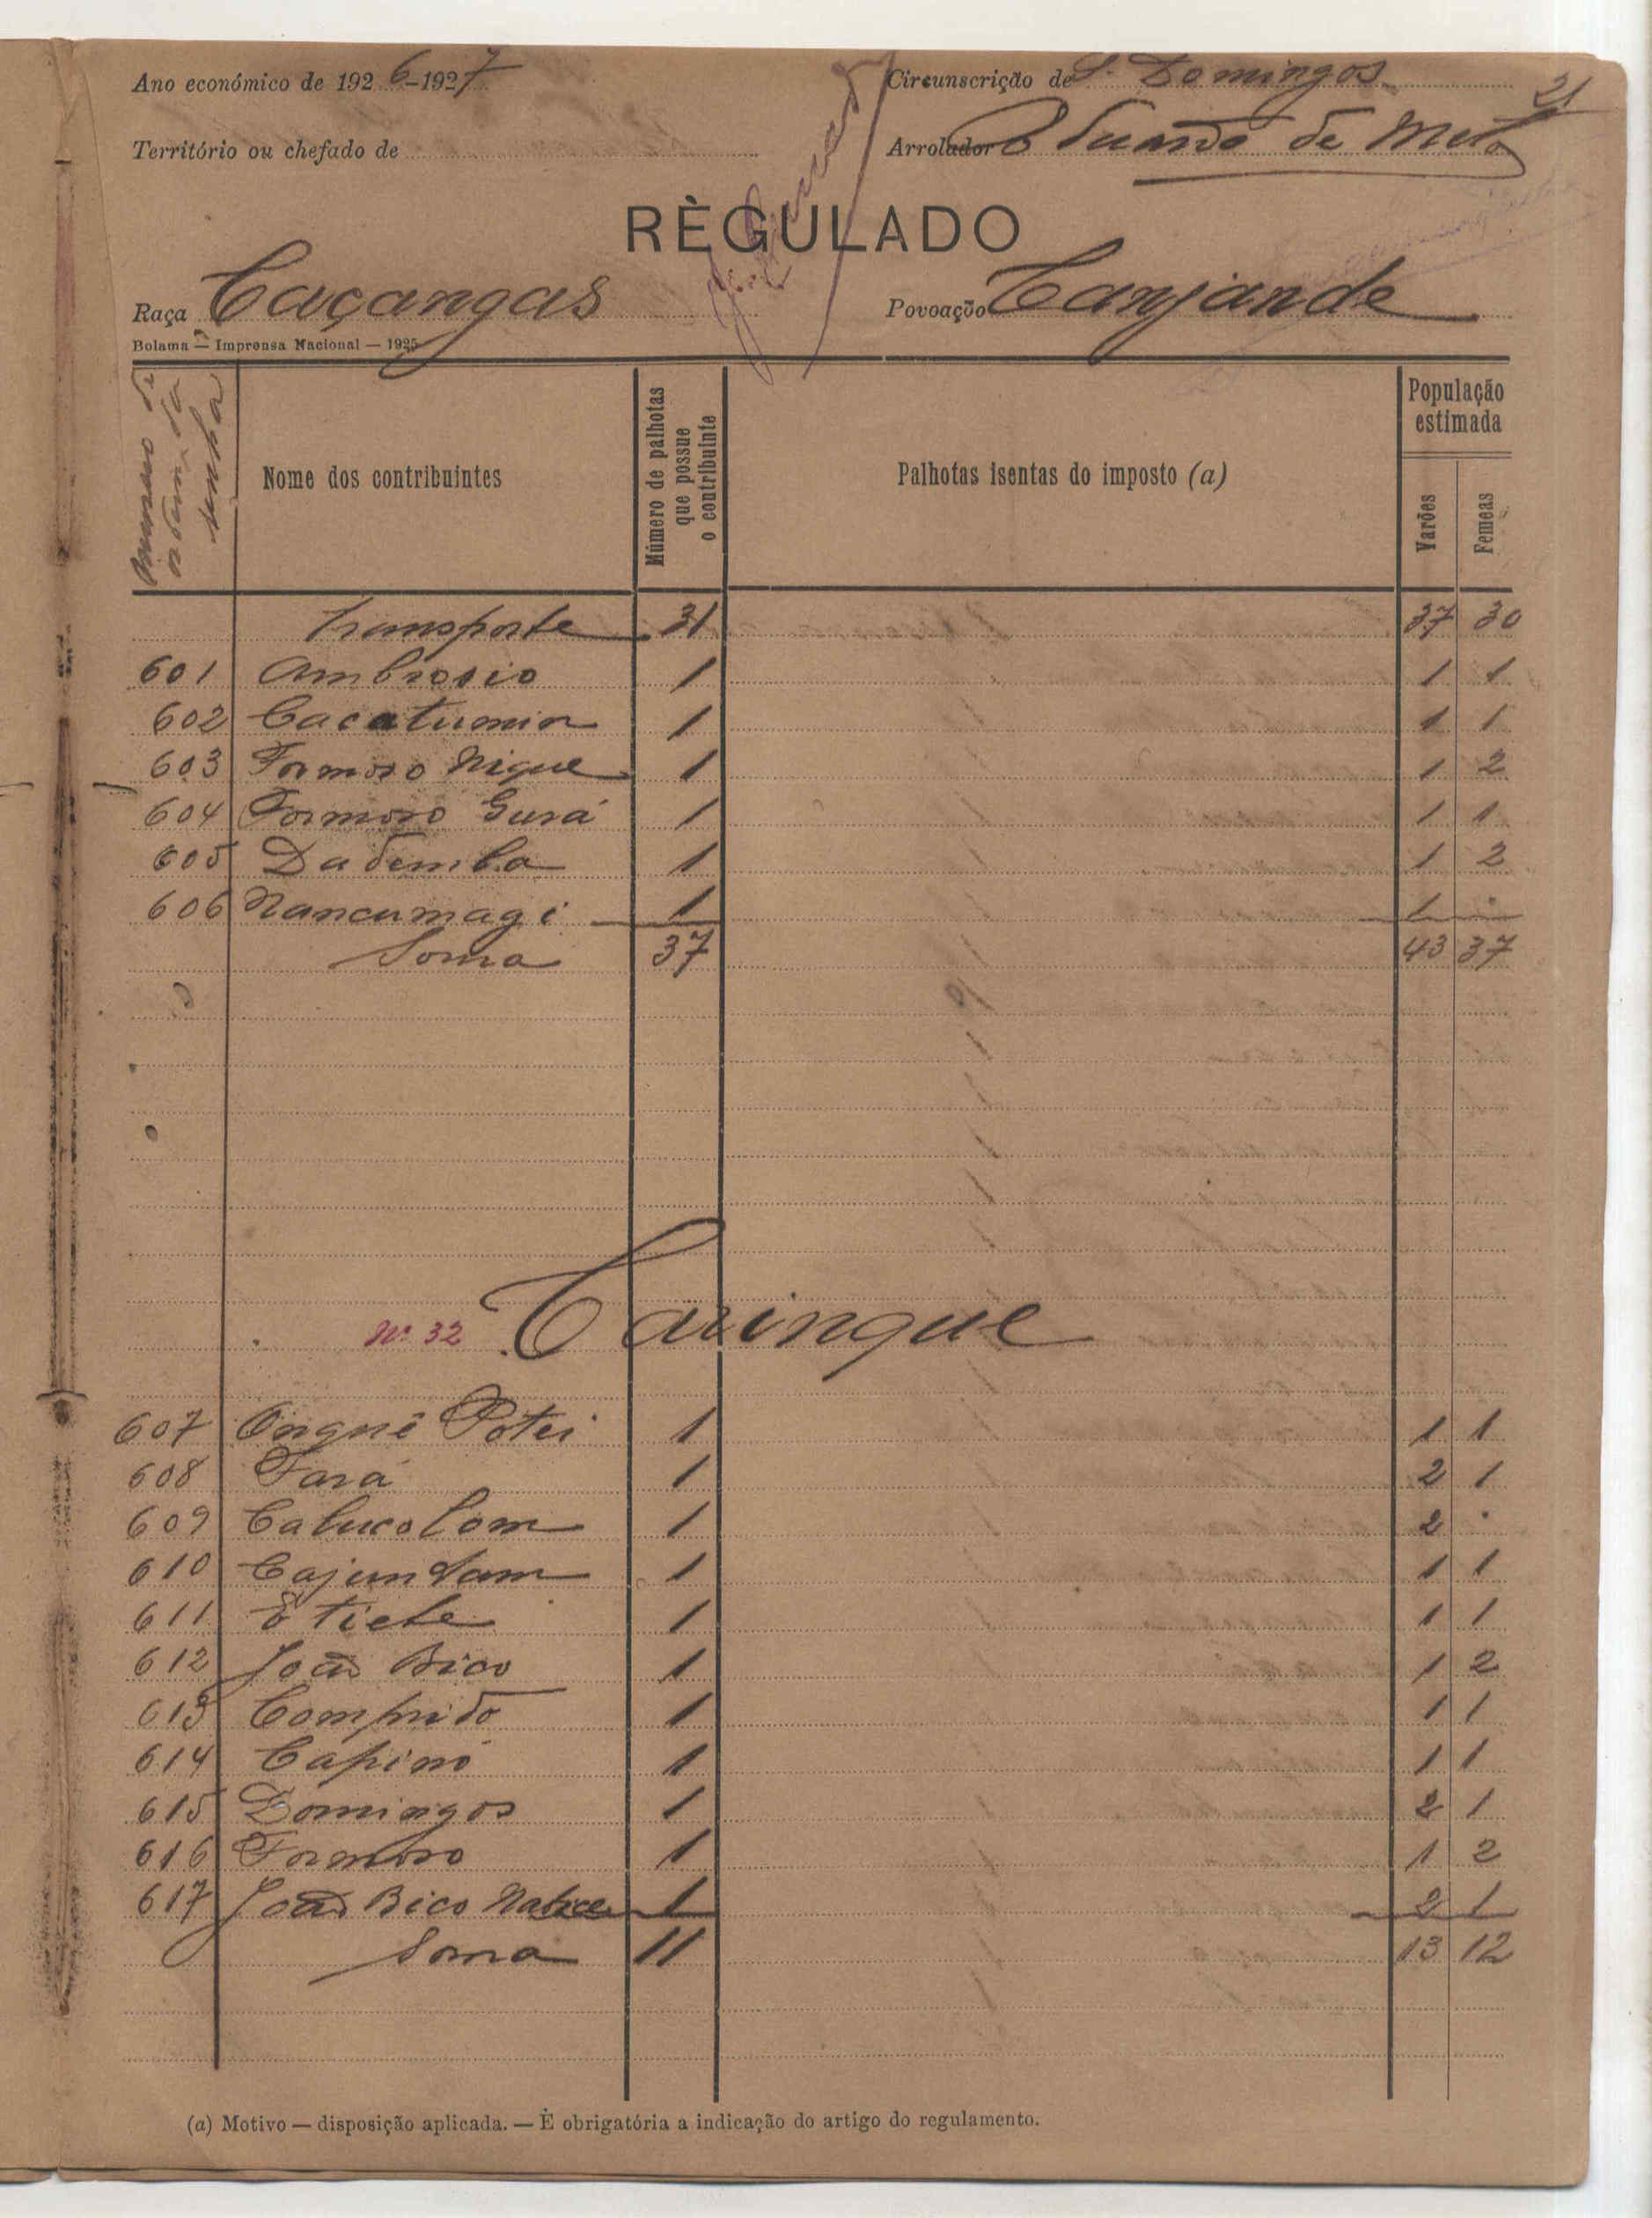 Ano económico de 1926-1927
Circunscrição de S. Domingos
21
Território ou chefado de
Arrolador Eduardo de Melo
RÈGULADO
Raça Caçangas
Povoação Canjande
Bolama — Imprensa Nacional — 1925
Nome dos contribuintes
Número de palhotas que possue o contribuinte
Palhotas isentas do imposto (a)
População estimada
Varões
Femeas
Transporte 31 37 30
601 Ambrosio 1 1 1
602 Cacatumin 1 1 1
603 Formoso Nique 1 1 2
604 Formoso Gurá 1 1 1
605 Dademba 1 1 2
606 Nancumagi 1 1 .
Soma 37 43 37
Nº 32 Caringue
607 Ongué Potei 1 1 1
608 Fará 1 2 1
609 Cabucolom 1 2 .
610 Cajundam 1 1 1
611 Etiete 1 1 1
612 João Bico 1 1 2
613 Comprido 1 1 1
614 Capinó 1 1 1
615 Domingos 1 2 1
616 Formoso 1 1 2
617 João Bico 1 2 1
Soma 11 13 12
(a) Motivo — disposição aplicada. — È obrigatória a indicação do artigo do regulamento.